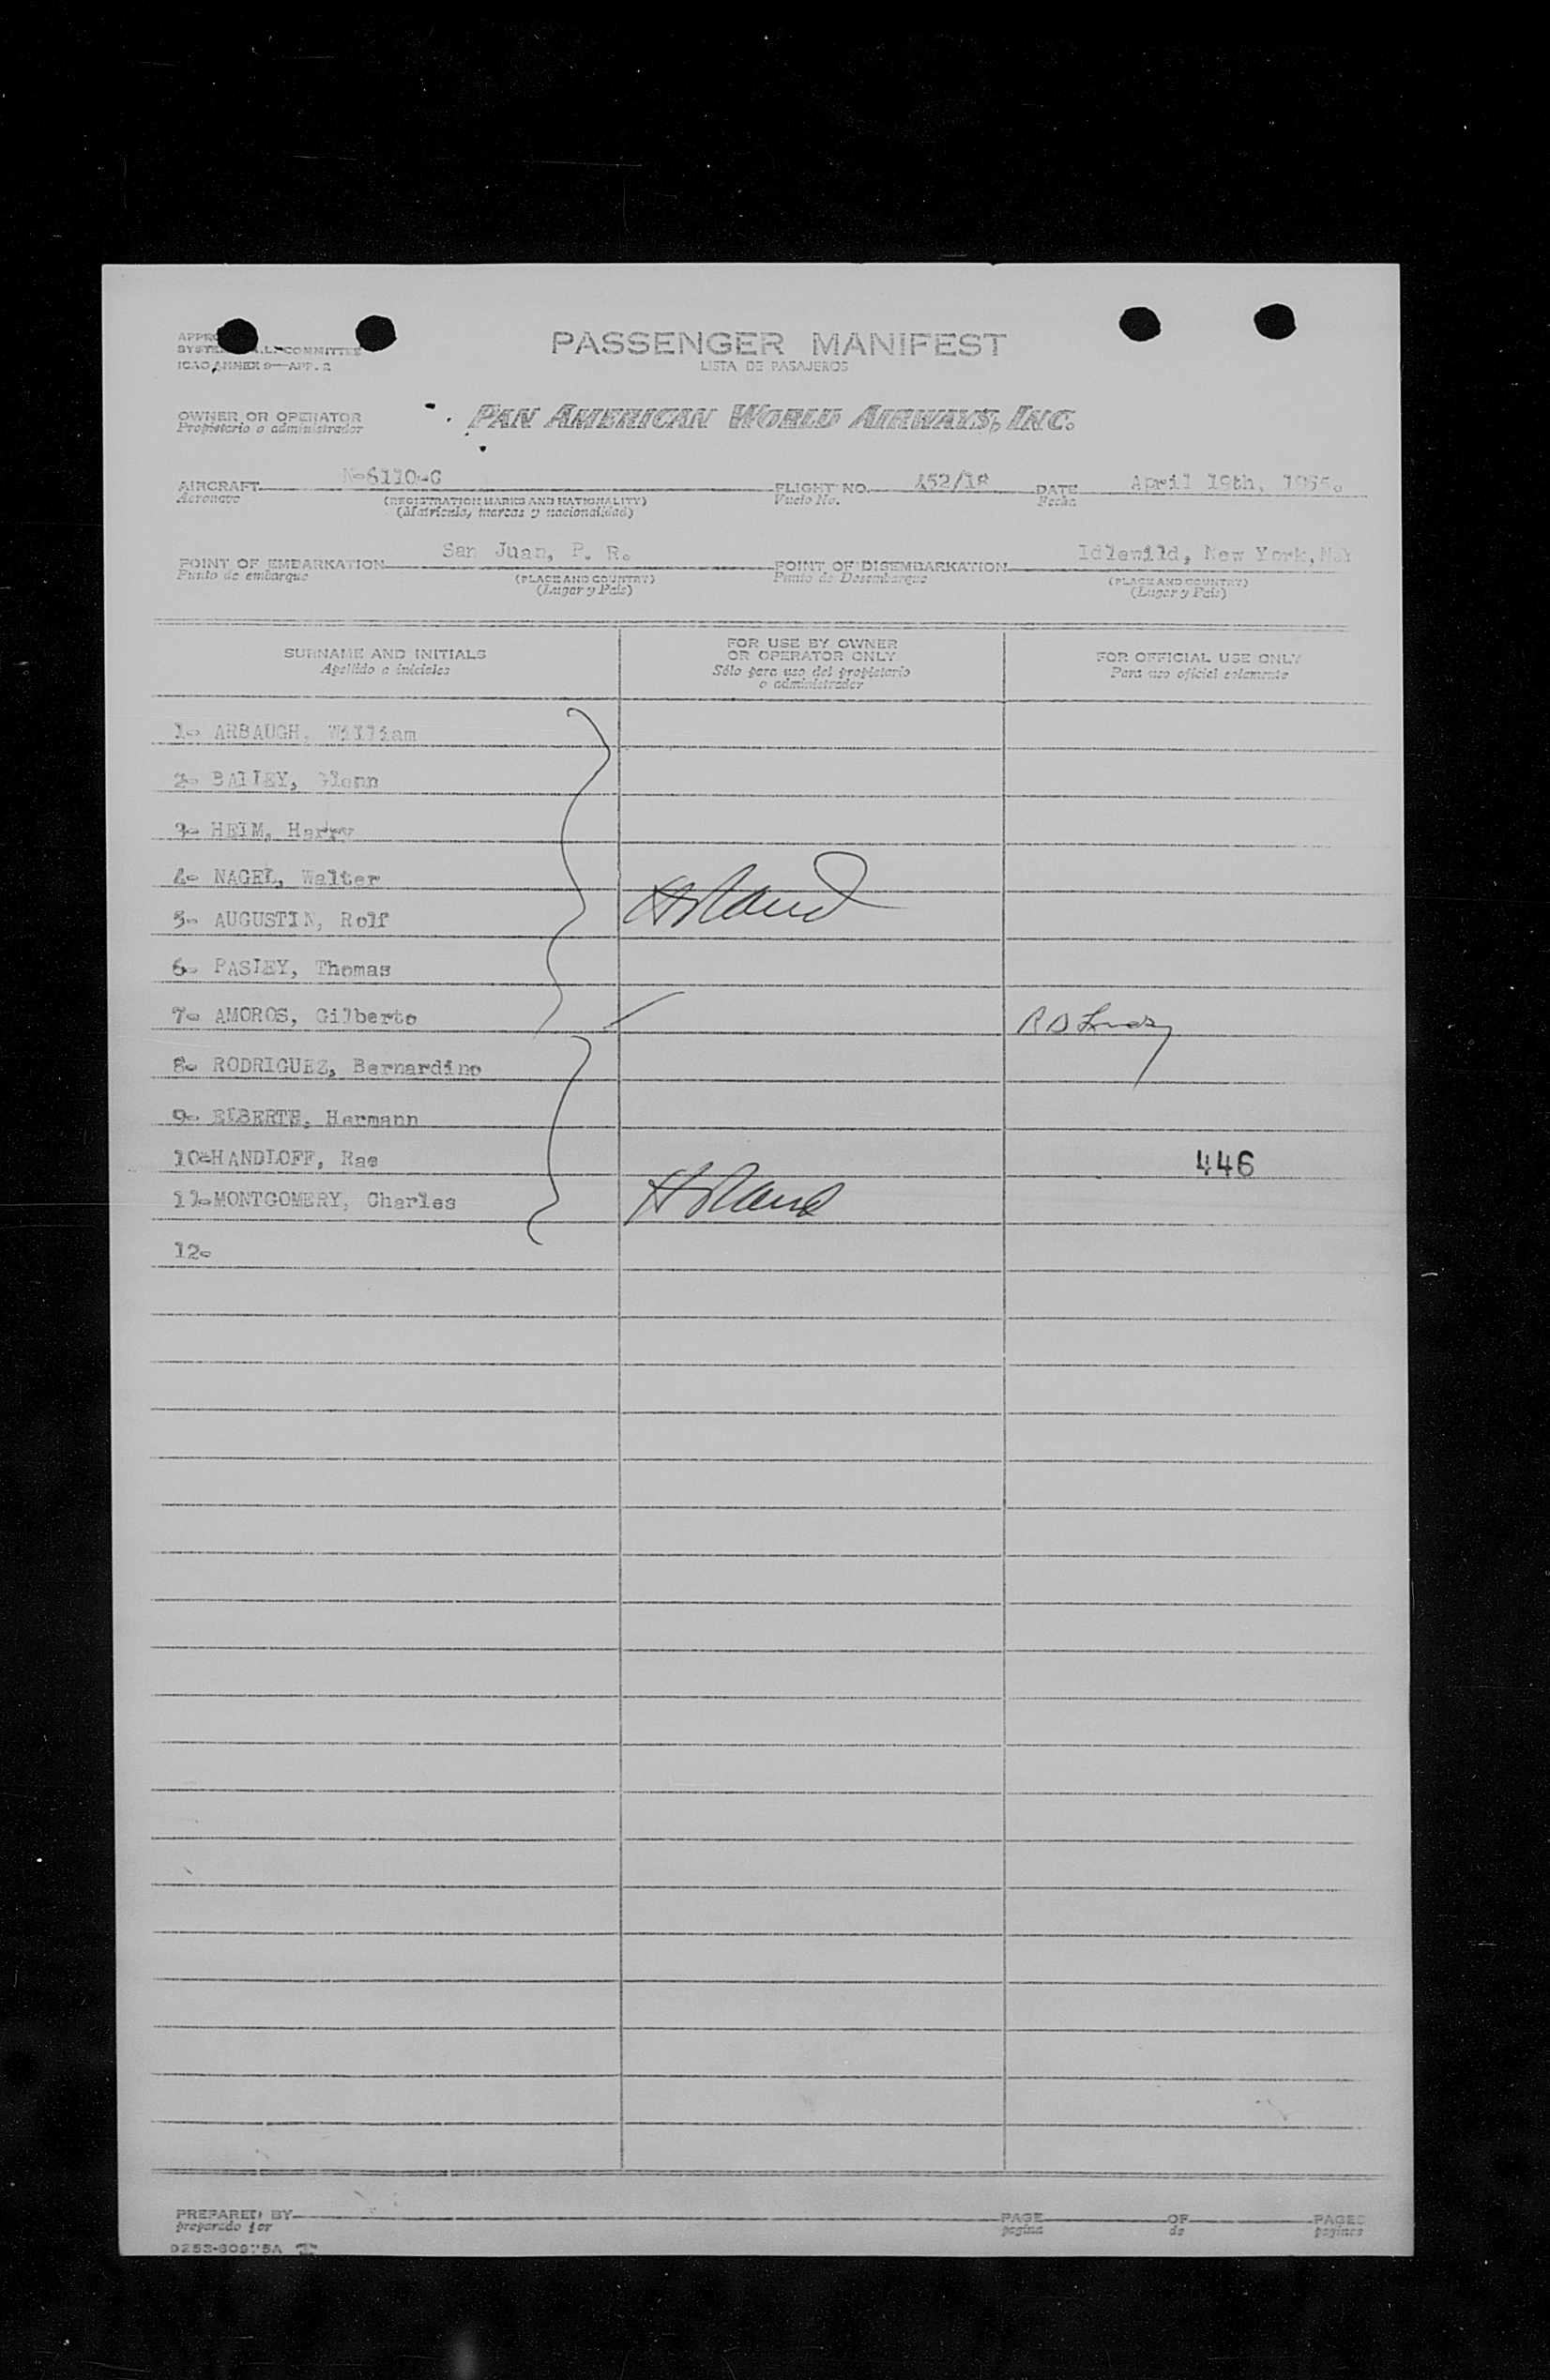 PASSENGER MANIFEST
LISTA DE PASAJEROS
COMMITTEE
ICAO ANNEX 9—APP. 2
OWNER OR OPERATOR PAN AMERICAN WORLD AIRWAYS, INC.
Propietario o administrador
AIRCRAFT N-6110-C FLIGHT NO. 452/18 DATE April 19th,
Aeronave (REGISTRATION MARKS AND NATIONALITY) Vuelo No. Fecha
(Matricula, marcas y nacionalidad)
POINT OF EMBARKATION San Juan, P. R. POINT OF DISEMBARKATION Idlewild, New York,
Punto de embarque (PLACE AND COUNTRY) Punto de Desembarque (PLACE AND COUNTRY)
(Lugar y Pais) (Lugar y Pais)
SURNAME AND INITIALS
Apellido e iniciales
FOR USE BY OWNER
OR OPERATOR ONLY
Sólo para uso del propietario
o administrador
FOR OFFICIAL USE ONLY
Para uso oficial solamente
1- ARBAUGH, William
2- BAILEY, Glenn
3- HEIM, Harry
4- NAGEL, Walter
5- AUGUSTIN, Rolf
6- PASLEY, Thomas
7- AMOROS, Gilberto
8- RODRIGUEZ, Bernardino
9- ELBERTH, Hermann
10-HANDLOFF, Rae 446
11-MONTGOMERY, Charles
12-
PREPARED BY PAGE OF PAGES
preparado por pagina de paginas
9253-60975A